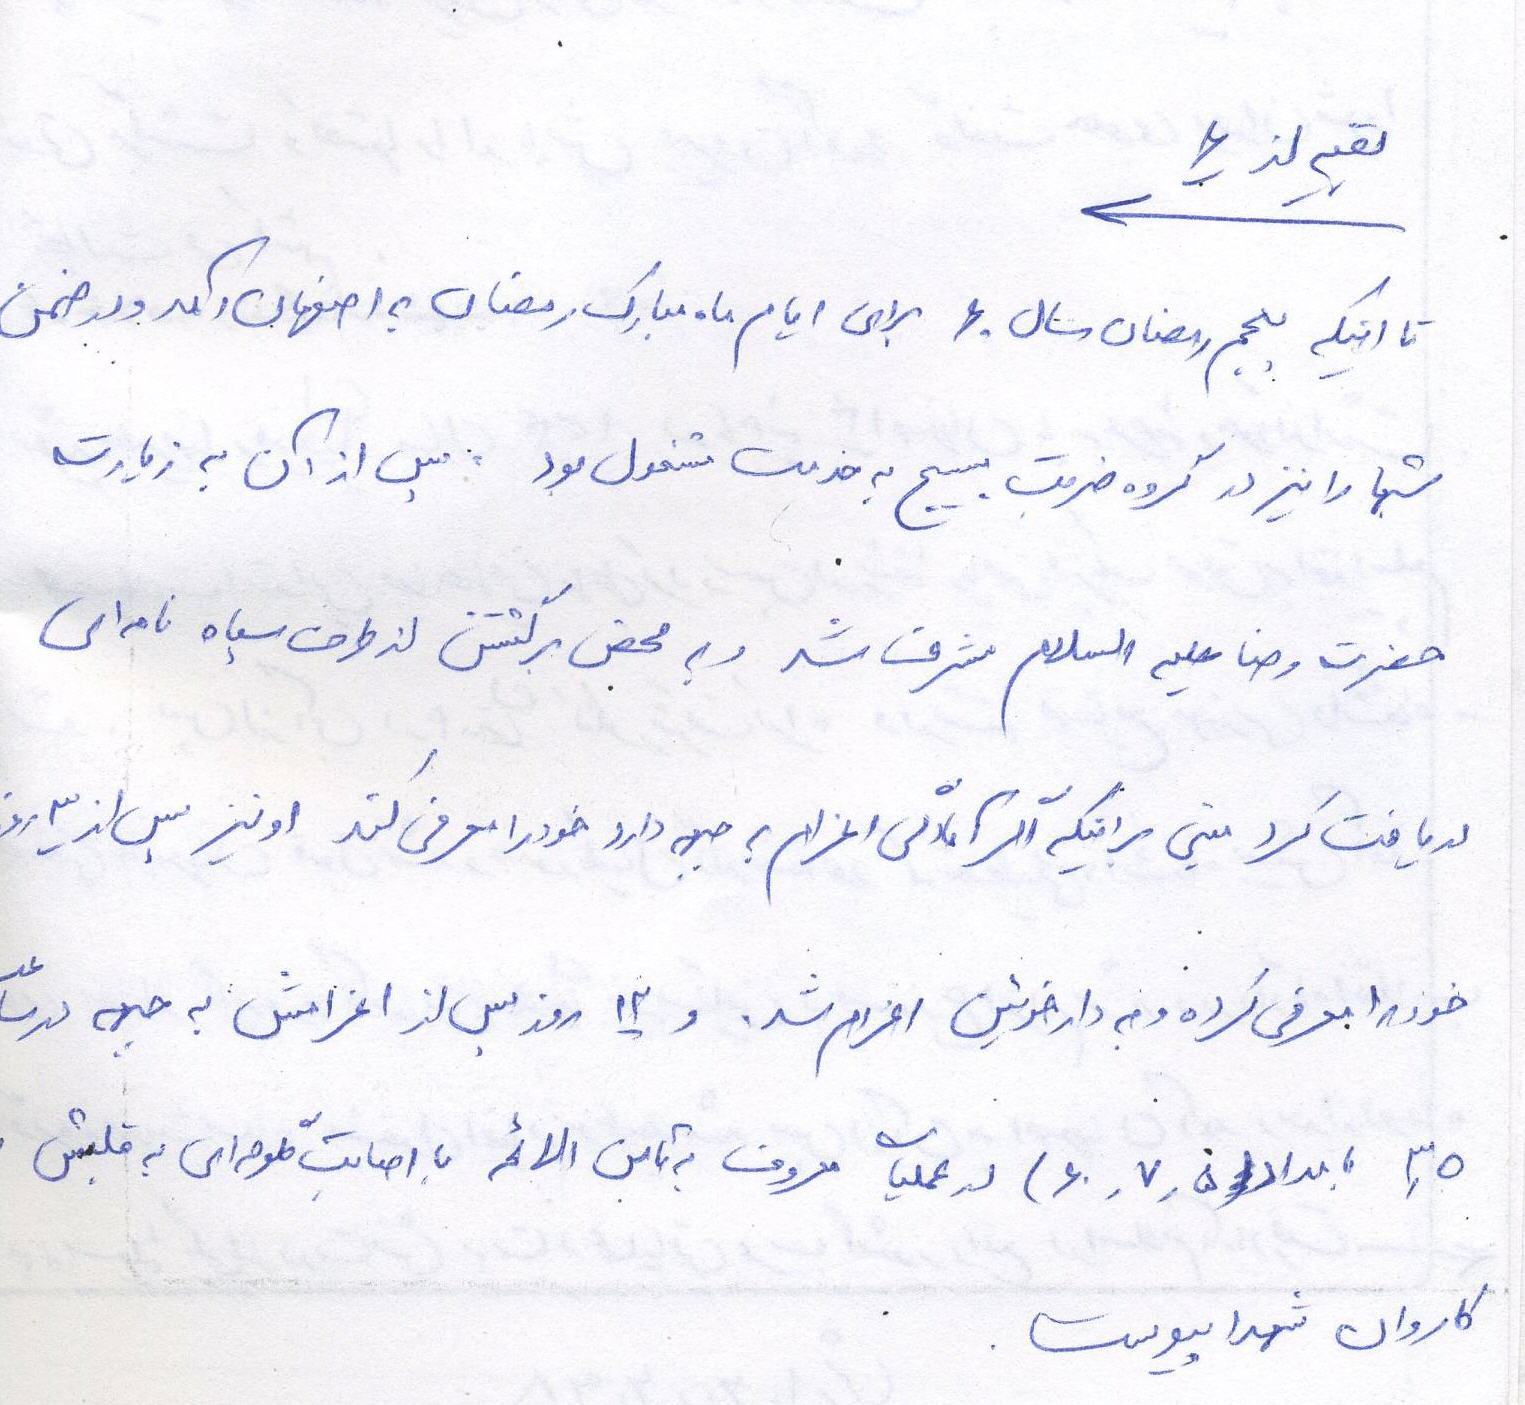 بقیه از ۲
تا اینکه پنجم رمضان سال ۶۰ برای ایام ماه مبارک رمضان به اصفهان آمد و در ضمن
شبها را نیز در گروه ضربت بسیج به خدمت مشغول بود . پس از آن به زیارت
حضرت رضا علیه السلام مشرف شد و به محض برگشتن از طرف سپاه نامه ای
دریافت کرد مبنی بر اینکه اگر آمادگی اعزام به جبهه دارد خود را معرفی کند او نیز پس از ۳ روز
خود را معرفی کرده و به دارخوئین اعزام شد . و ۱۳ روز پس از اعزامش به جبهه در ساعت
۳٫۵ بامداد ۵٫۷٫۶۰) در عملیات معروف به ثامن الائمه با اصابت گلوله ای به قلبش
کاروان شهدا پیوست .